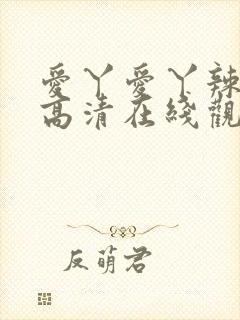 愛丫愛丫辣
高清在綫觀
反萌君